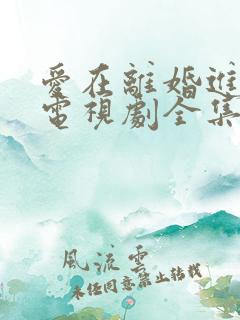 愛在離婚進
電視劇全集
風流雲
未經同意禁止轉載